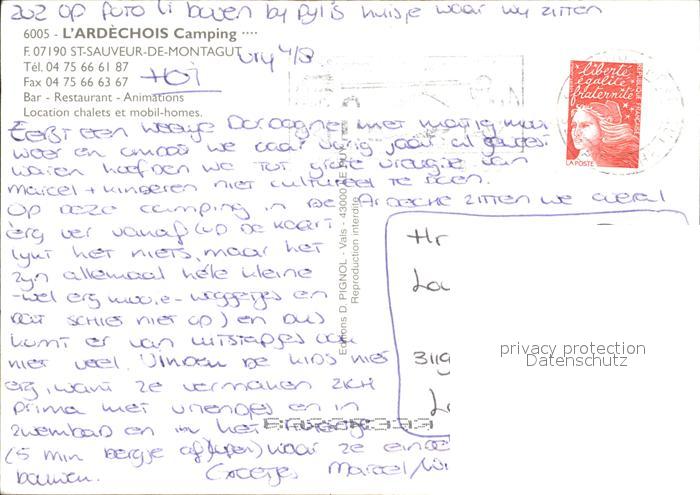 ZOZ op foto li boven bij pijl is huisje waar wij zitten
6005 - L'ARDÈCHOIS Camping ****
F. 07190 ST-SAUVEUR-DE-MONTAGUT
Vrij 4/8
Tél. 04 75 66 61 87
Fax 04 75 66 63 67
HOI
Bar - Restaurant - Animations
Location chalets et mobil-homes.
liberté
égalité
fraternité
RÉPUBLIQUE FRANÇAISE
LA POSTE
Eerst een weekje Dordogne met matig mooi
weer en omdat we daar vorig jaar al geweest
waren hoefden we tot grote vreugde van
Marcel + kinderen niet cultureel te doen.
Op deze camping in de Ardèche zitten we overal
erg ver vanaf (op de kaart
lijkt het niets, maar het
zijn allemaal hele kleine
-wel erg mooie- weggetjes en
dat schiet niet op) en dus
komt er van uitstapjes ook
niet veel. Vinden de kids niet
erg, want ze vermaken zich
prima met vriendjes en in
zwembad en in het
(5 min bergje aflopen) waar ze
bouwen. Groetjes Marcel/
Editions D. PIGNOL - Vals - 43000 LE PUY
Reproduction interdite
Hr
3119
privacy protection
Datenschutz